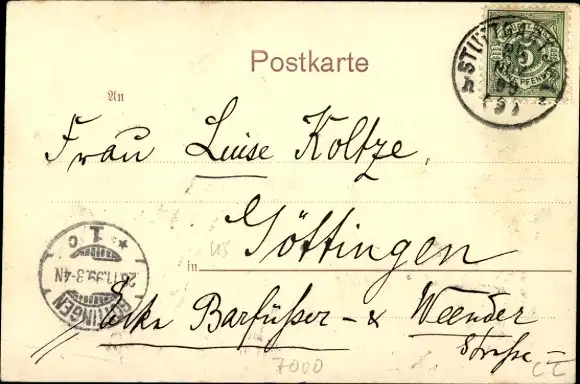 Postkarte
STUTTGART
5
PFENNIG
An
Frau Luise Koltze,
Göttingen
in
Ecke Barfüßer - & Weender
Straße
GÖTTINGEN
1
c
26.11.99.3-4N
7000